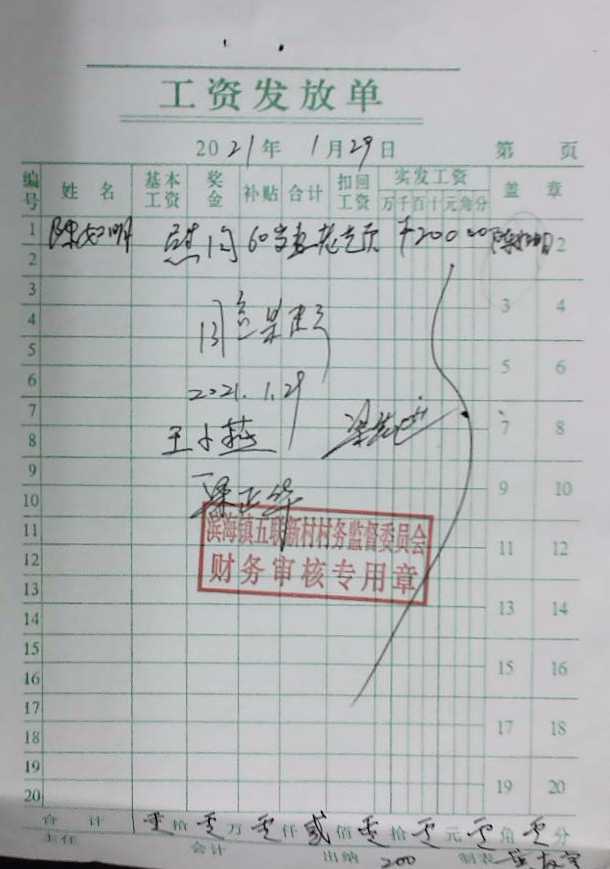 工资发放单
2021年1月29日 第 页
编号 姓名 基本工资 奖金 补贴 合计 扣回工资 实发工资 盖章
万千百十元角分
1 慰问60岁 ¥200.00 2
2
3 3 4
4 同意
5 5 6
6 2021.1.29
7 7 8
8 王小燕
9 9 10
10 梁正华
11 滨海镇五联新村村务监督委员会 11 12
12 财务审核专用章
13 13 14
14
15 15 16
16
17 17 18
18
19 19 20
20
合计 零拾零万零仟贰佰零拾零元零角零分
主任 会计 出纳 200 制表